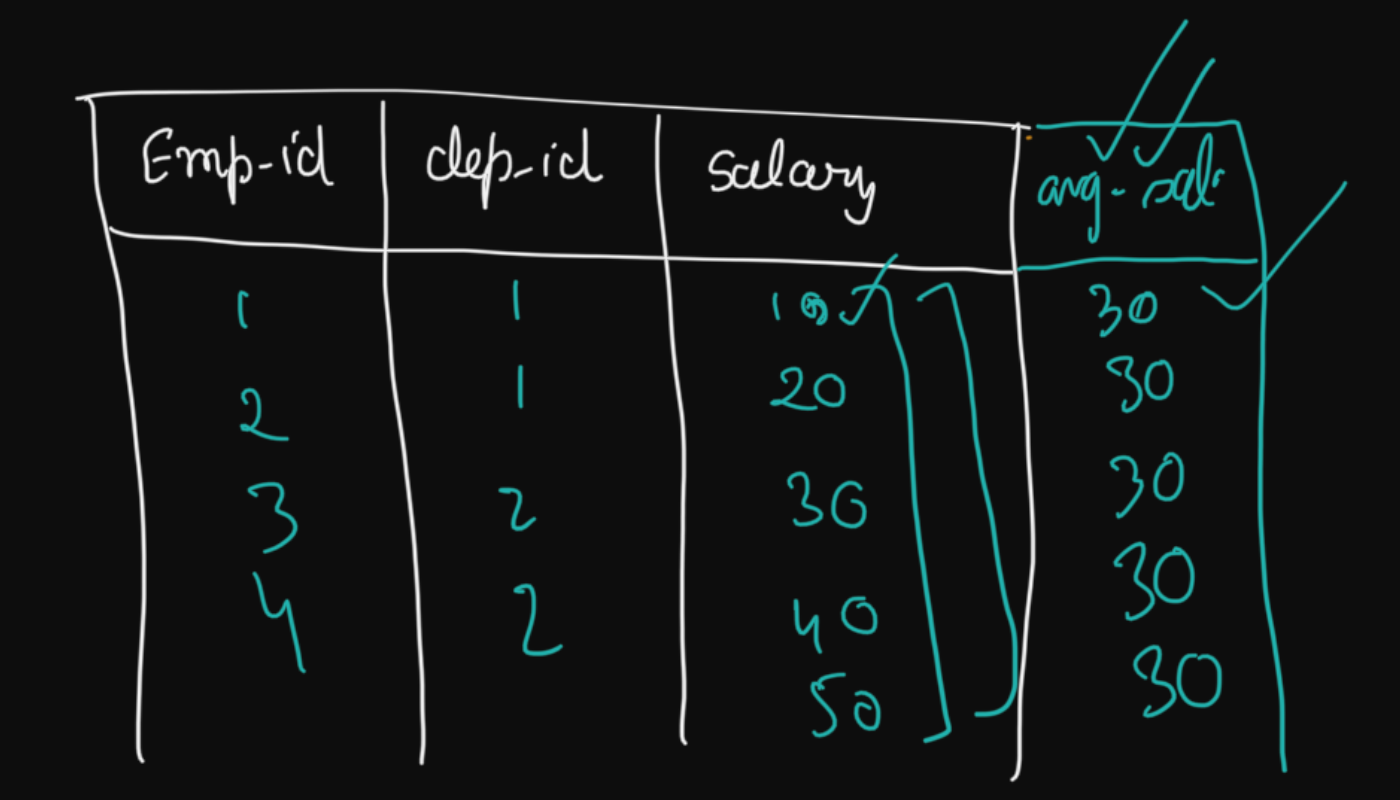 Emp-id dep-id salary avg-sal
1 1 10 30
2 1 20 30
3 2 30 30
4 2 40 30
50 30